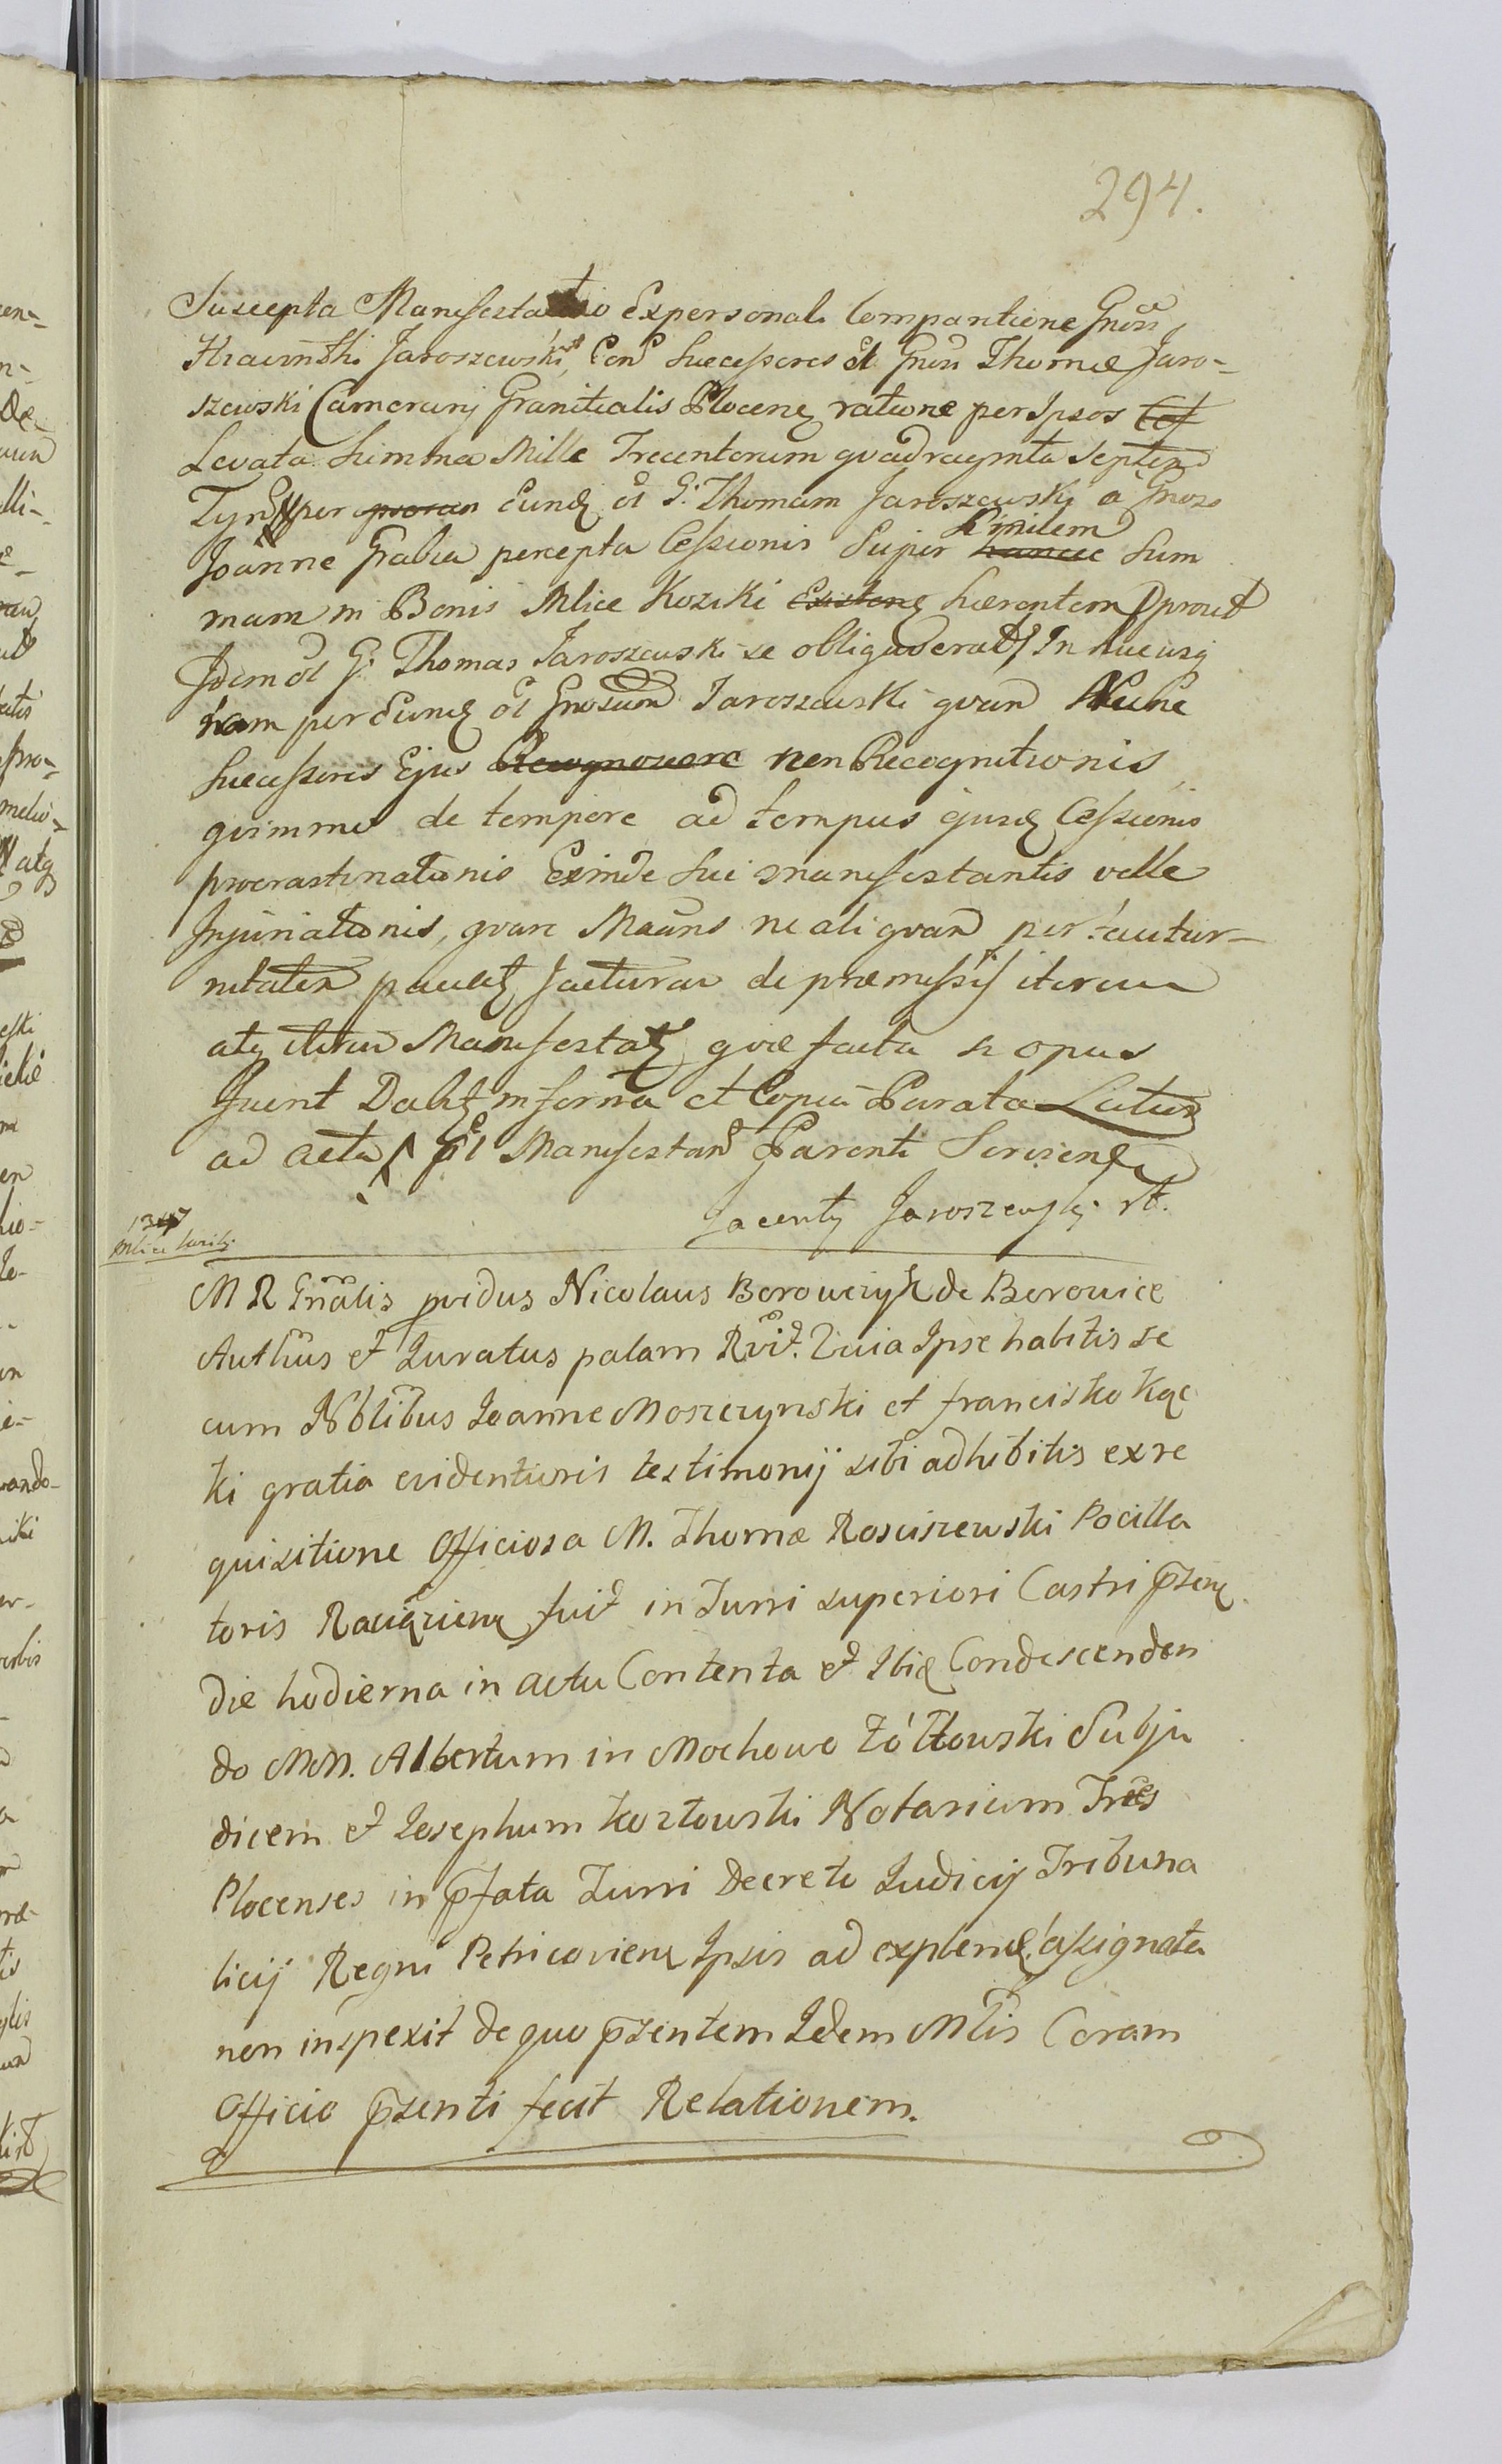 294.
Suscepta Manifestatio Expersonali Comparitione Gnosi
Hiacinthi Jaroszewski, Con Successores ol Gnosi Thomæ Jaro-
szewski Camerarij Granitialis Plocens ratione per Ipsos
Levata Summa Mille Trecentorum qvadraginta Septem
Tynf per Eund ol G: Thomam Jaroszewski a Gnoso
Joanne Grabia percepta Cessionis Super Similem hancce Sum
mam in Bonis Mlice Koziki Existens hærentem prout
Idem ol G: Thomas Jaroszewski se obligaverat In hucusq
nam per Eund ol Gnosum Jaroszewski qvam Nunc
Successores Ejus Recognoscere non Recognitionis
qvimmo de tempore ad tempus ejusd Cessionis
procrastinationis Exinde Sui manifestantis velle
Injuriationis, qvare Mãns ne aliqvam per tacitur-
nitatem jacturam de præmissis iterum
atq iterum Manifestat qvæ facta si opus
fuerit Dabit in forma et Copia Parata Latius
ad acta ol Manifestan Parenti Serviens
Jacenty Jaroszewski rt.
1347
Mlice Koziki
M R Gnãlis pvidus Nicolaus Borowczyk de Borowice
Authus et Juratus palam Rvit. Quia Ipse habitis se
cum Nblibus Joanne Moszczynski et francisko Kąc
ki gratia evidentioris testimonij sibi adhibitis ex re
quisitione Officiosa M. Thomæ Rosciszewski Pocilla
toris Raciąziens fuit in Turri superiori Castri pzens
die hodierna in actu Contenta et Ibiq Condescenden
do MM. Albertum in Mochowo Żółtowski Subju
dicem et Josephum Kozłowski Notarium Trres
Plocenses in pfata Turri Decreto Judicij Tribuna
licij Regni Petricoviens Ipsis ad explend assignata
non inspexit de quo pzentem Idem Mlis Coram
Officio pzenti fecit Relationem.